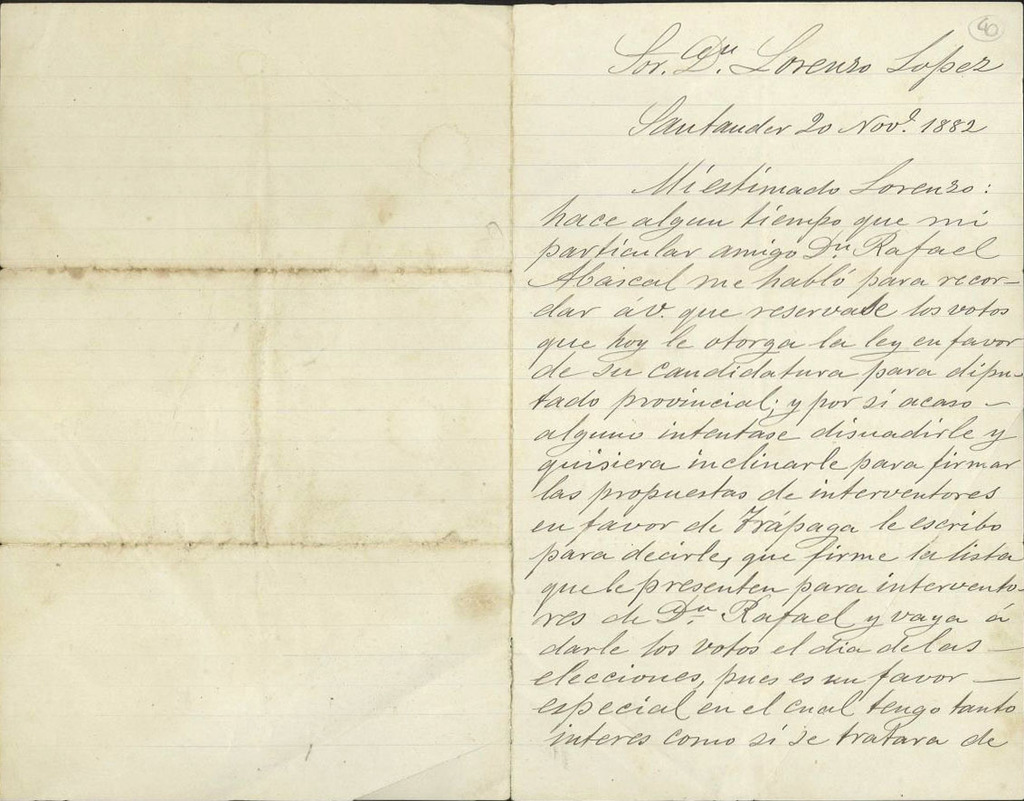 40
Sor. Dn. Lorenzo Lopez
Santander 20 Nove. 1882
Mi estimado Lorenzo:
hace algun tiempo que mi
particular amigo Dn. Rafael
Abascal me habló para recor-
dar á v. que reservase los votos
que hoy le otorga la ley en favor
de su candidatura para dipu-
tado provincial; y por si acaso -
alguno intentase disuadirle y
quisiera inclinarle para firmar
las propuestas de interventores
en favor de Trápaga le escribo
para decirle, que firme la lista
que le presenten para intervento-
res de Dn. Rafael y vaya á
darle los votos el dia de las -
elecciones, pues es un favor -
especial en el cual tengo tanto
interes como si se tratara de